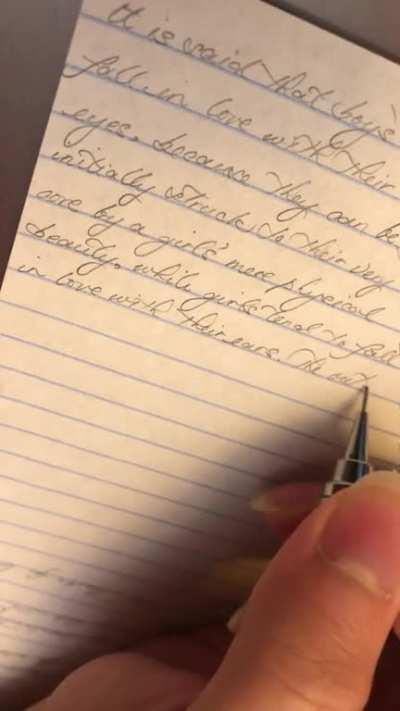 It is said that boys
fall in love with their
eyes, because they can be
initially struck to their very
core by a girls' mere physical
beauty, while girls tend to fall
in love with their ears. The